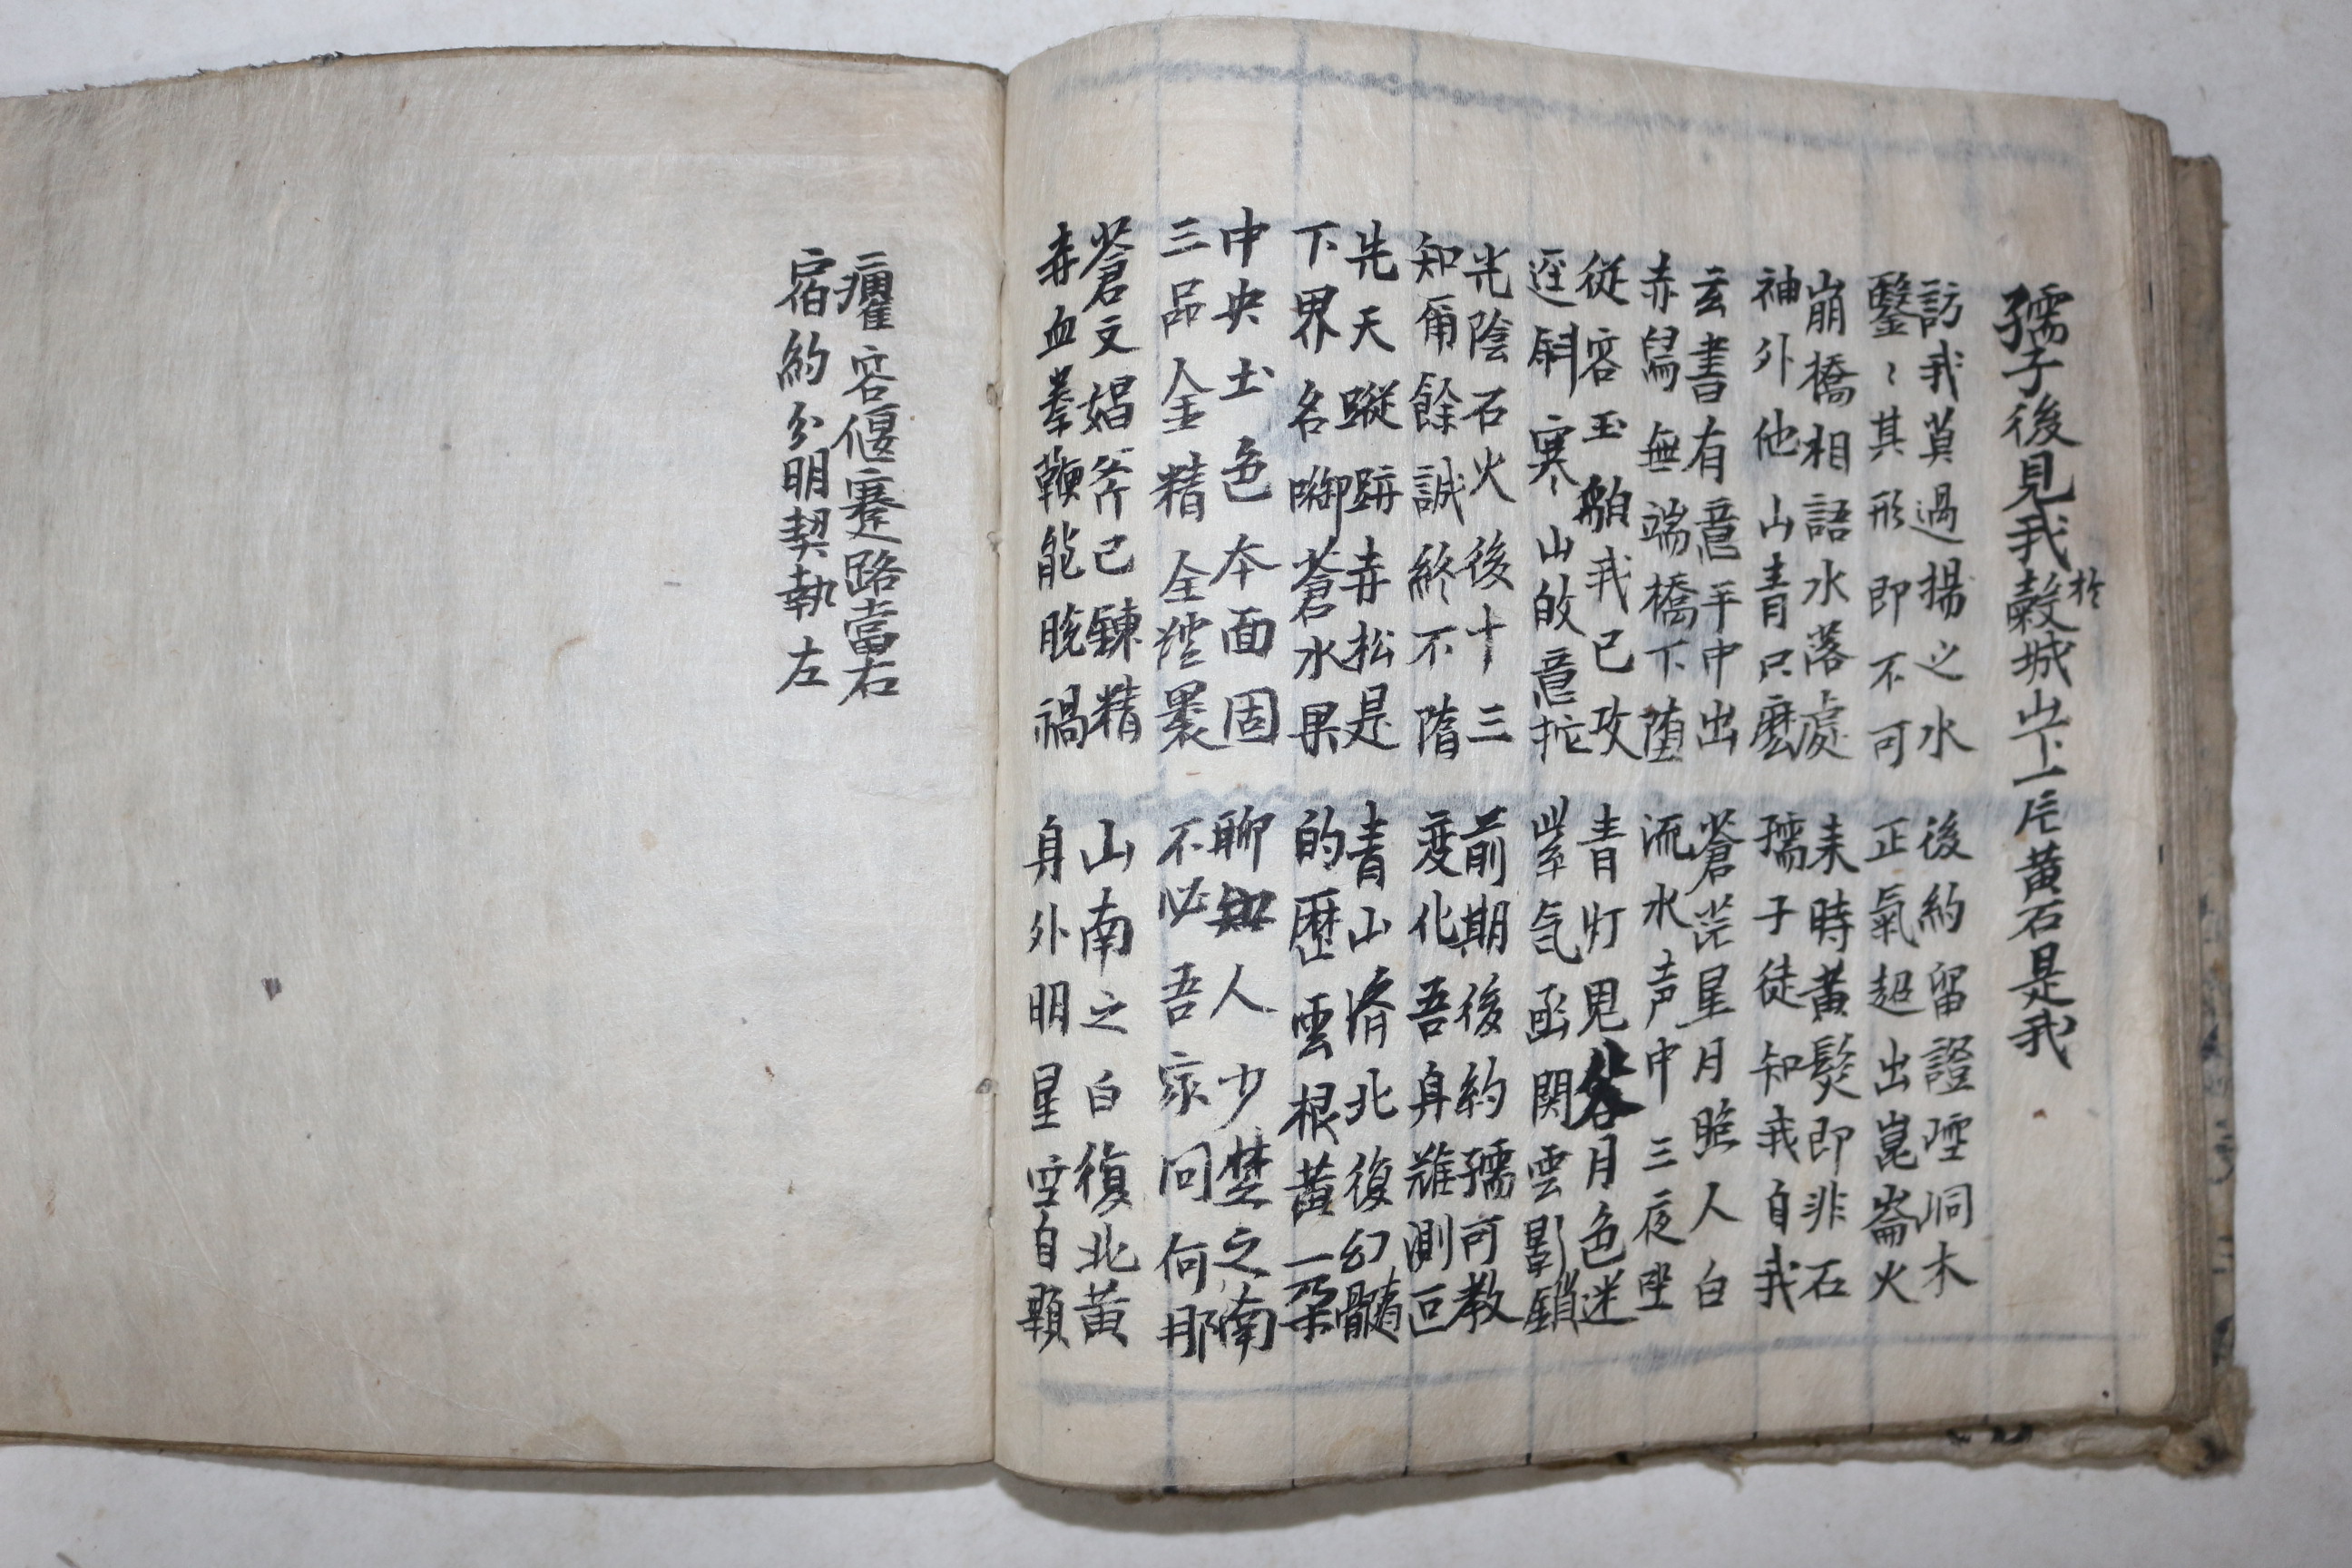 孺子後見我於穀城山下一片黄石是我
訪我莫過揚之水
鑿〻其形即不可
後約留證陘洞木
正氣超出崑崙火
崩橋相語水落處
神外他山青只麽
来時黄髮即非石
孺子徒知我自我
玄書有意手中出
赤舃無端橋下堕
蒼茫星月照人白
流水声中三夜坐
從容玉貌我已攻
逕斜寒山的意拕
青灯見谷月色迷
紫气函関雲影鎖
光陰石火後十三
知甭餘誠終不隋
前期後約孺可教
変化吾身難測叵
先天蹤跡赤松是
下界名啣蒼水果
青山濟北復幻髓
的歴雲根黄一朶
中央土色本面固
三品金精全體裹
聊知人少楚之南
不必吾家问何那
蒼文娼斧已錬精
赤血羣鞭能脱禍
山南之白復北黄
身外明星空自顆
癯容偃蹇路當右
宿約分明契執左